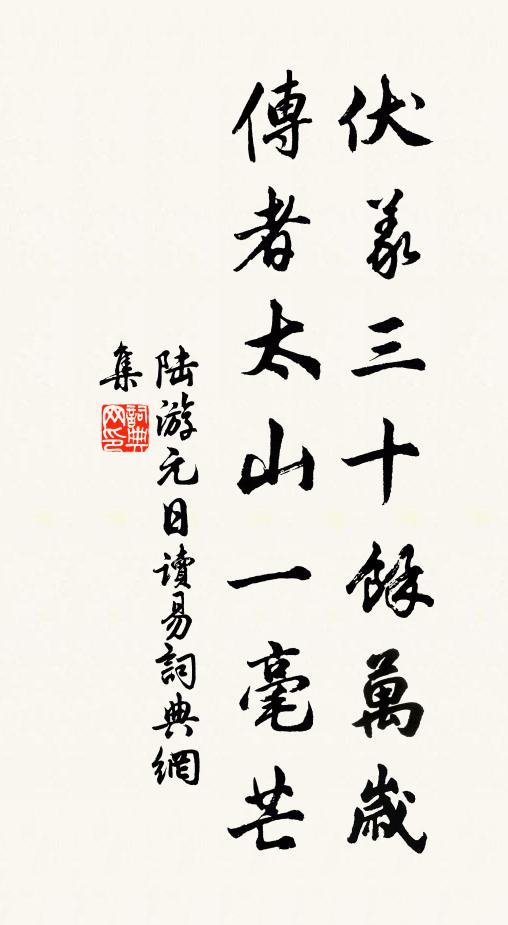 伏羲三十餘萬歲
傳者太山一毫芒
陸游元日讀易詞典網
集
詞典
网印